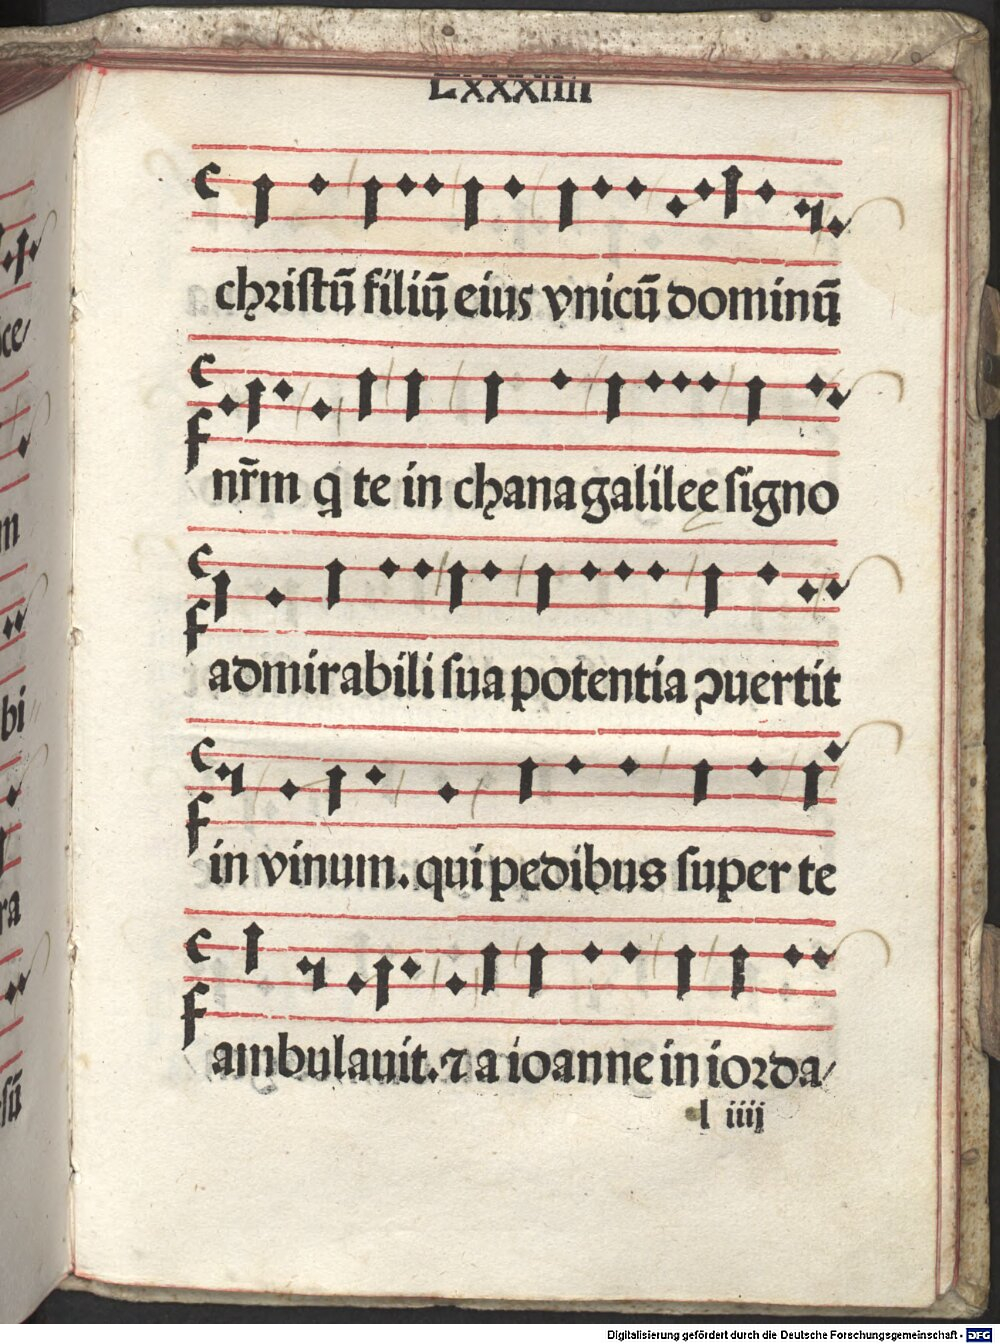 Lxxxiiii
christū filiū eius vnicū dominū
nr̄m q te in chana galilee signo
admirabili sua potentia ꝯuertit
in vinum. qui pedibus super te
ambulauit. ⁊ a ioanne in iorda/
l iiij
ce/
m
bi
ra
sū
Digitalisierung gefördert durch die Deutsche Forschungsgemeinschaft - DFG